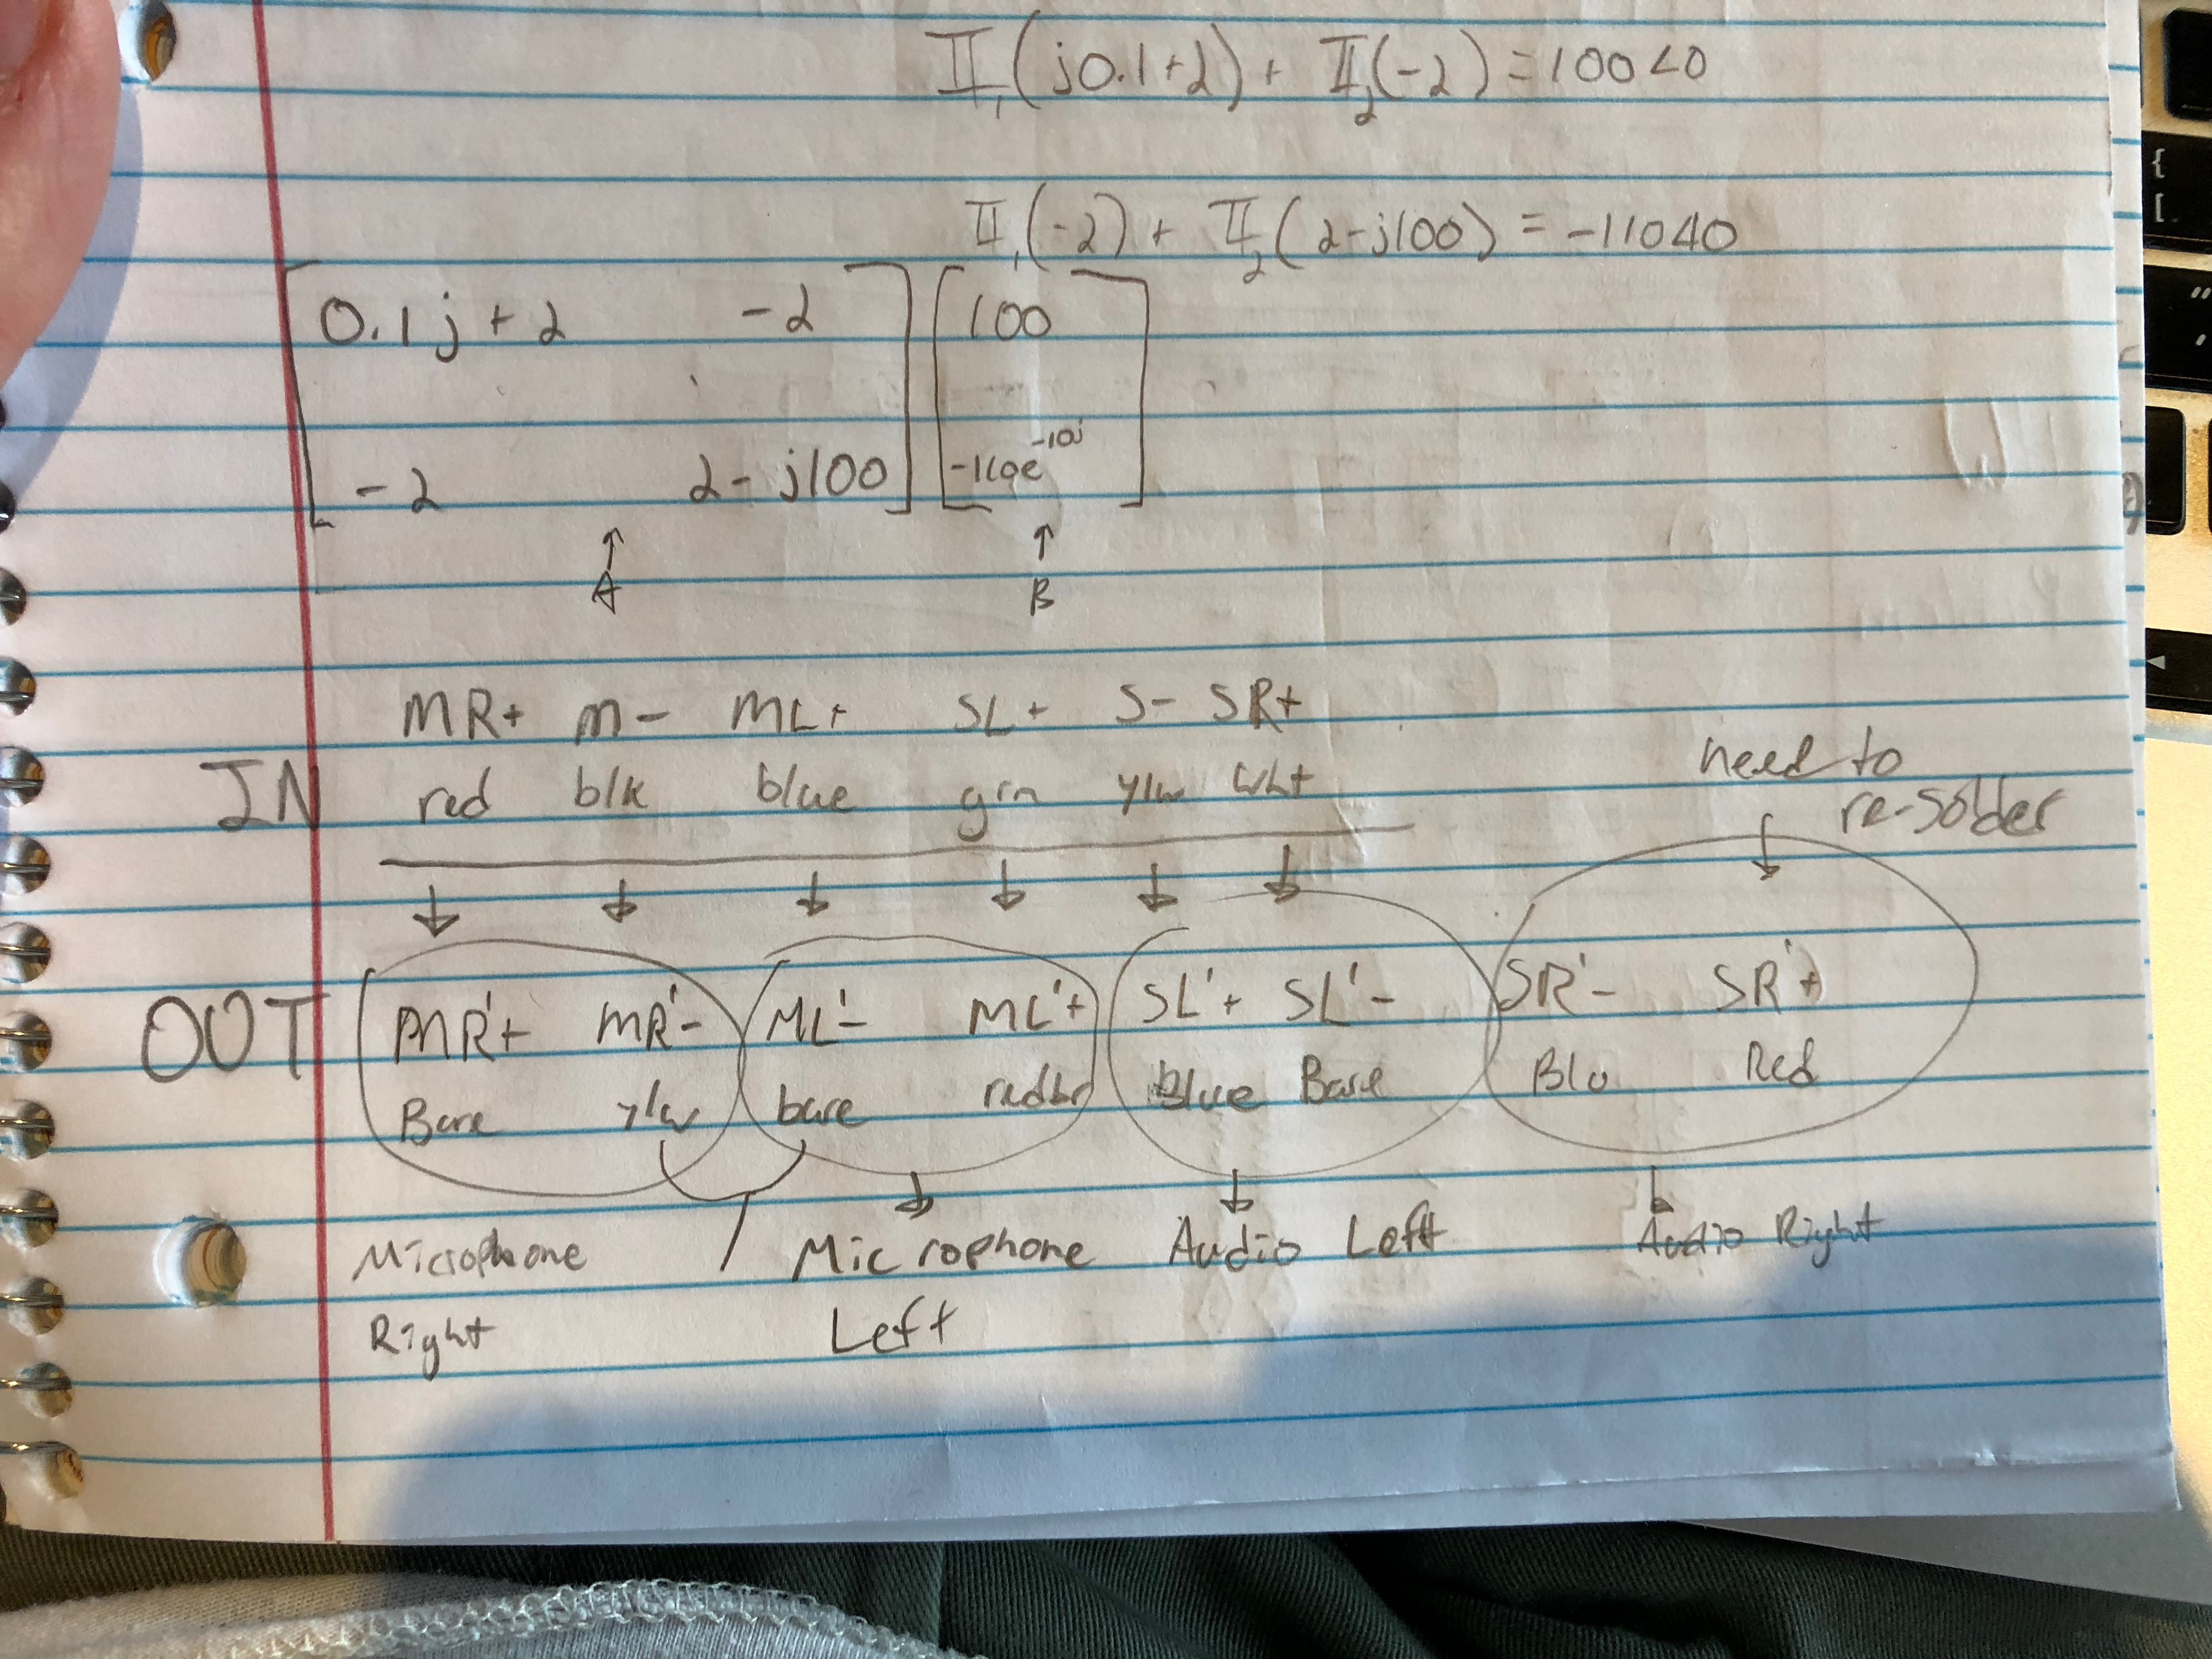 II₁(j0.1+2) + II₂(-2) = 100∠0
II₁(-2) + II₂(2-j100) = -110∠0
0.1j+2 -2 100
-2 2-j100 -110e^-10j
A B
MR+ M- ML+ SL+ S- SR+
IN red blk blue grn ylw wht
need to
re-solder
OUT MR'+ MR'- ML'- ML'+ SL'+ SL'- SR'- SR'+
Bare ylw bare redbr Blue Bare Blu Red
Microphone Microphone Audio Left Audio Right
Right Left